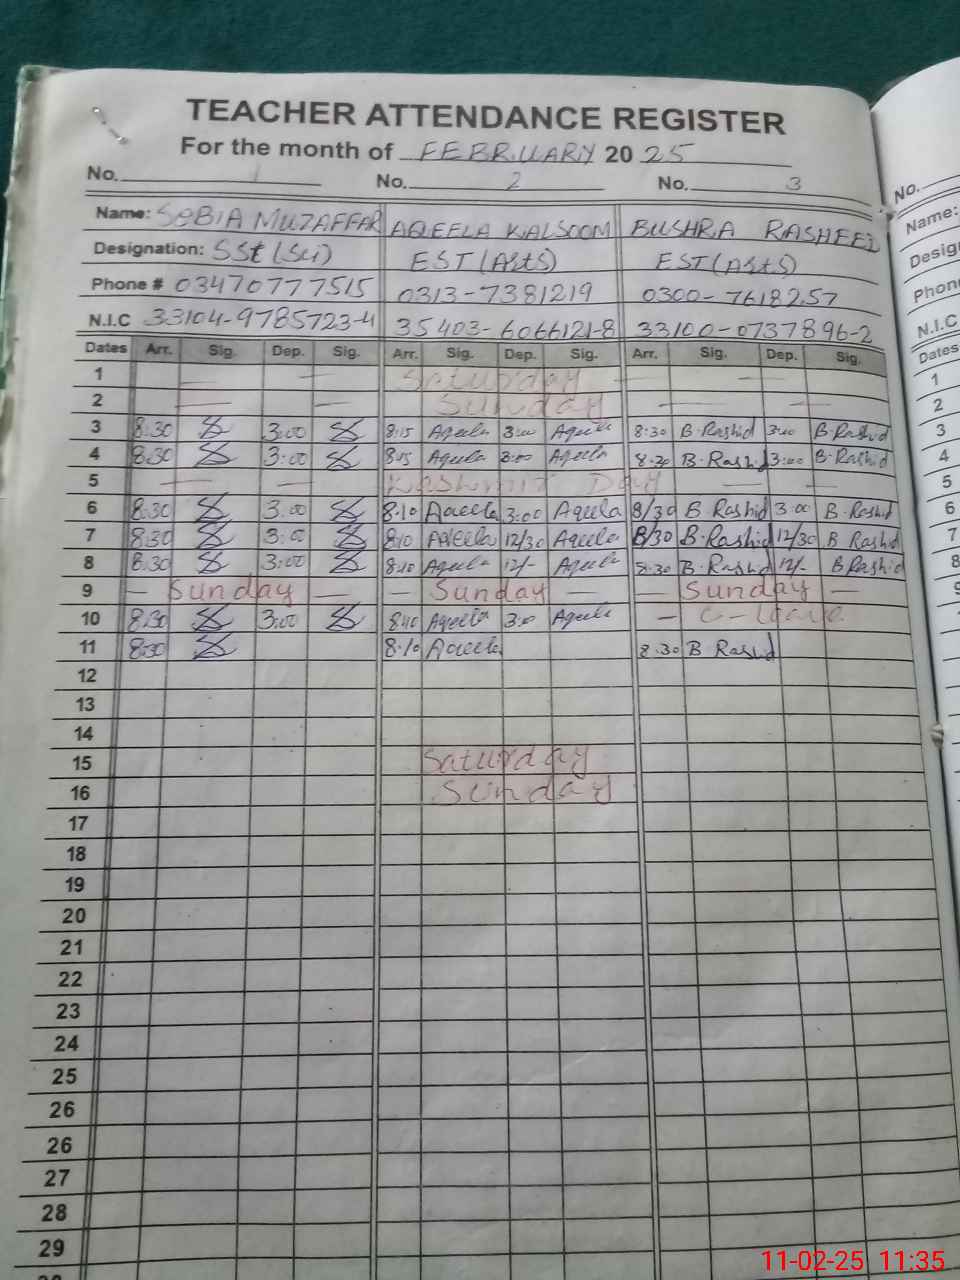 TEACHER ATTENDANCE REGISTER
For the month of FEBRUARY 20 25
No. 1 No. 2 No. 3
No.
Name: SOBIA MUZAFFAR AQEELA KALSOOM BUSHRA RASHEED
Name:
Designation: SSt (Sci) EST (Arts) EST (Arts)
Phone # 03470777515 0313-7381219 0300-7618257
Phon
N.I.C 33104-9785723-4 35403-6066121-8 33100-0737896-2
N.I.C
Dates Arr. Sig. Dep. Sig. Arr. Sig. Dep. Sig. Arr. Sig. Dep. Sig.
Dates
1 — — Saturday — — 1
2 — — Sunday — — 2
3 8:30 3:00 8:15 Aqeela 3:00 Aqeela 8:30 B.Rashid 3:00 B.Rashid 3
4 8:30 3:00 8:15 Aqeela 3:00 Aqeela 8:30 B.Rashid 3:00 B.Rashid 4
5 — — Kashmir Day — — 5
6 8:30 3:00 8:10 Aqeela 3:00 Aqeela 8/30 B Rashid 3:00 B.Rashid 6
7 8:30 3:00 8:10 Aqeela 12/30 Aqeela 8/30 B.Rashid 12/30 B Rashid 7
8 8:30 3:00 8:10 Aqeela 12/- Aqeela 8:30 B.Rashid 12/- B Rashid 8
9 — Sunday — — Sunday — — Sunday — 9
10 8:30 3:00 8:10 Aqeela 3:00 Aqeela — C-leave 10
11 8:30 8:10 Aqeela 8:30 B Rashid 11
12
13
14
15 Saturday
16 Sunday
17
18
19
20
21
22
23
24
25
26
26
27
28
29
11-02-25 11:35